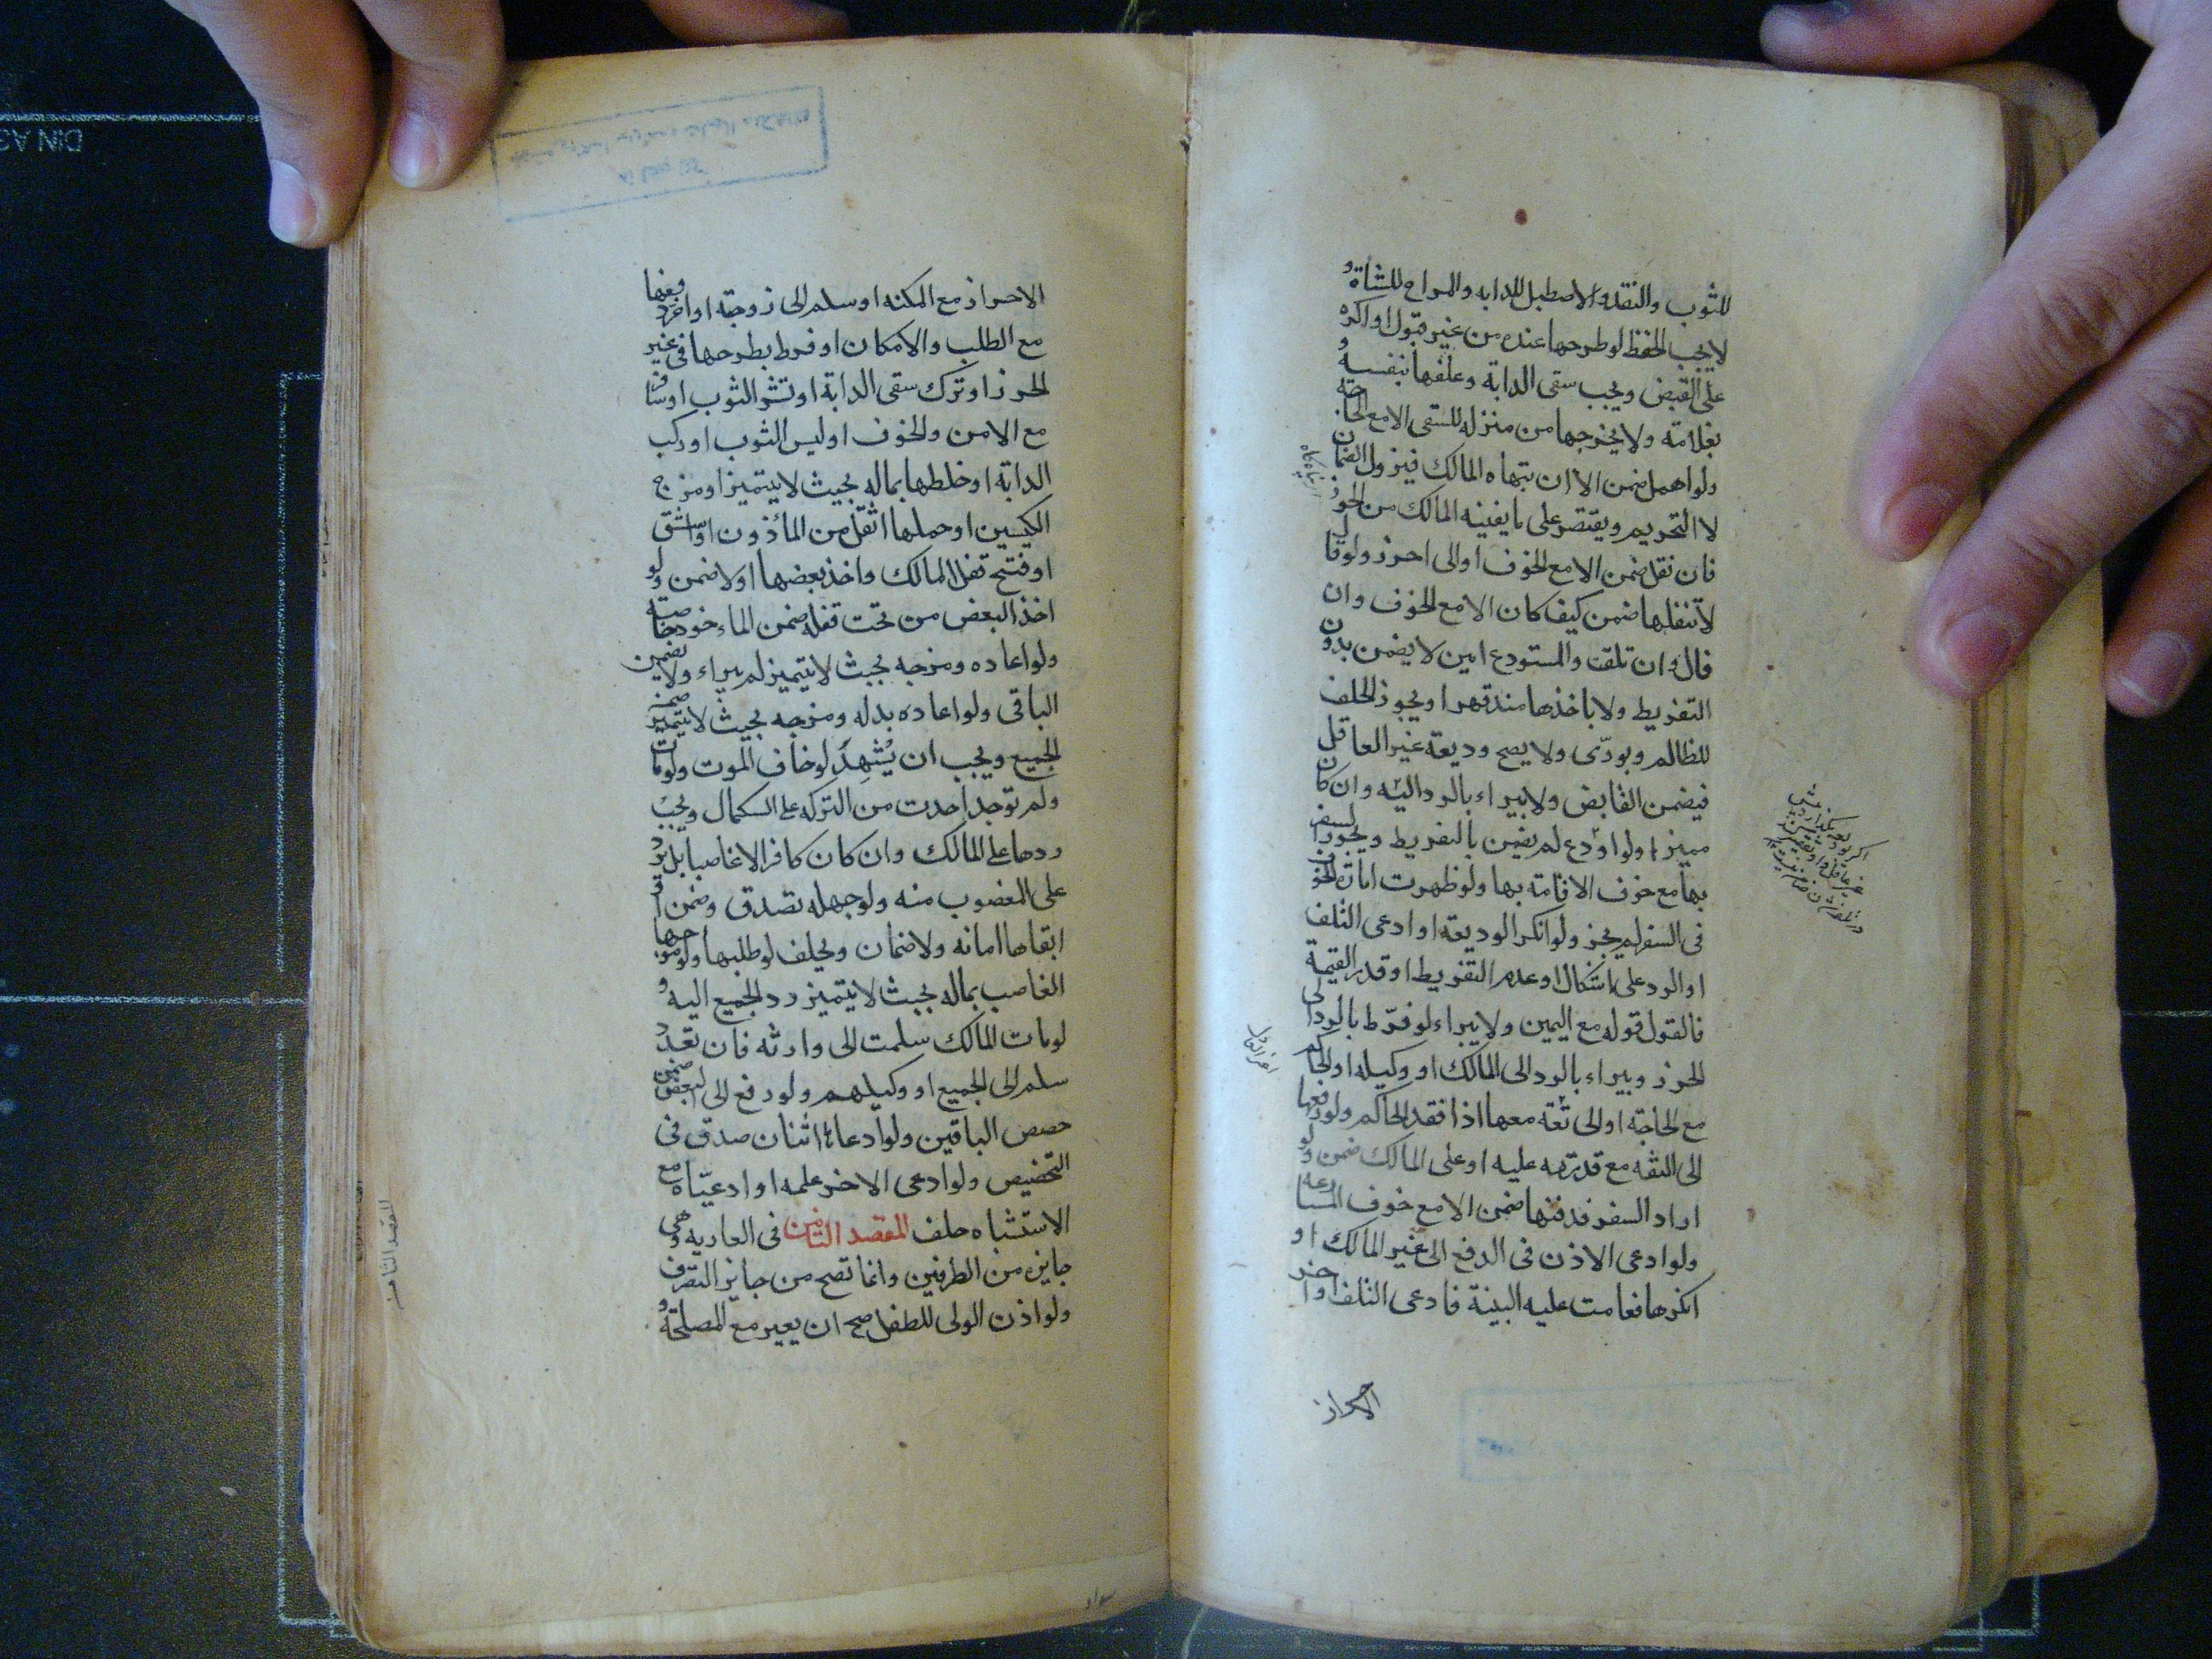 للثوب والنقد والاصطبل للدابه والمراح للشاة و
لا يجب الحفظ لو طرحها عنده من غير قبول او اكره
على القبض ويجب سقى الدابة وعلفها بنفسه و
بغلامه ولا يخرجها من منزله للسقى الا مع الحاجة
ولو اهمل ضمن الا ان ينهاه المالك فيزول الضمان
لا التحريم ويقتصر على ما يعينه المالك من الحرز
فان نقل ضمن الا مع الخوف او الى احرز ولو قال
لا تنقلها ضمن كيف كان الا مع الخوف وان
قال وان تلفت والمستودع امين لا يضمن بدون
التفريط ولا باخذها منه قهرا ويجوز الحلف
للظالم ويورّى ولا يصح وديعة غير العاقل
فيضمن القابض ولا يبراء بالرد اليه وان كان
مميزا ولو اودع لم يضمن بالتفريط ويجوز السفر
بها مع خوف الاقامة بها ولو ظهرت امارة الخوف
فى السفر لم يجز ولو انكر الوديعة او ادعى التلف
او الرد على اشكال او عدم التفريط او قدر القيمة
فالقول قوله مع اليمين ولا يبراء لو فرّط بالرد الى
الحرز ويبراء بالرد الى المالك او وكيله او الحاكم
مع الحاجة او الى ثقة معها اذا فقد الحاكم ولو دفعها
الى الثقه مع قدرته عليه او على المالك ضمن ولو
اراد السفر فدفنها ضمن الا مع خوف المسارعة
ولو ادعى الاذن فى الدفع الى غير المالك او
انكرها فقامت عليه البينة فادعى التلف او اخر
الاحراز
الاحراز مع المكنه او سلم الى زوجته او اخر دفعها
مع الطلب والامكان او فرط بطرحها فى غير
الحرز او ترك سقى الدابة او نشر الثوب او سافر
مع الامن والخوف او لبس الثوب او ركب
الدابة او خلطها بماله بحيث لا يتميز او مزج
الكيسين او حملها اثقل من المأذون او اشق
او فتح قفل المالك واخذ بعضها اولا ضمن ولو
اخذ البعض من تحت قفله ضمن الماءخوذ خاصة
ولو اعاده ومزجه بحيث لا يتميز لم يبراء ولا يضمن
الباقى ولو اعاده بدله ومزجه بحيث لا يتميز ضمن
الجميع ويجب ان يُشهِد لو خاف الموت ولو مات
ولم توجد اخذت من التركه على اشكال ويجب
ردها على المالك وان كان كافرا لا غاصبا بل يرد
على المغصوب منه ولو جهله تصدق وضمن او
ابقاها امانه ولا ضمان ويحلف لو طلبها ولو مزجها
الغاصب بماله بحيث لا يتميز رد الجميع اليه و
لو مات المالك سلمت الى وارثه فان تعدد
سلم الى الجميع او وكيلهم ولو دفع الى البعض ضمن
حصص الباقين ولو ادعاها اثنان صدق فى
التخصيص ولو ادعى الاخر علمه او ادعيّاه مع
الاشتباه حلف المقصد الثامن فى العاريه وهى
جايزه من الطرفين وانما تصح من جايز التصرف
ولو اذن الولى للطفل صح ان يعير مع المصلحة و
المقصد الثامن